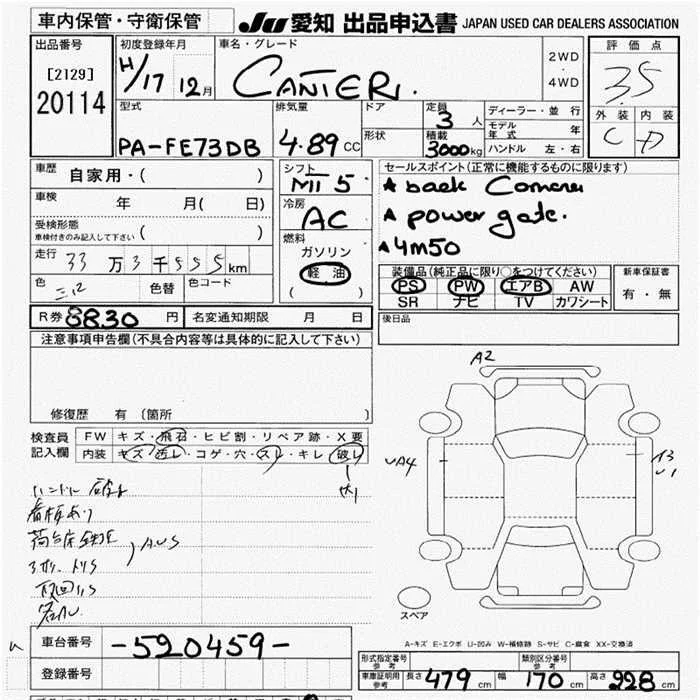 車内保管・守衛保管
JU 愛知 出品申込書 JAPAN USED CAR DEALERS ASSOCIATION
出品番号
[2129]
20114
初度登録年月
H/17 12月
車名・グレード
CANTER.
2WD
・
4WD
評価点
3.5
外装 内装
C D
型式
PA-FE73DB
排気量
4.89 CC
ドア
形状
定員
3 人
積載
3000kg
ディーラー・並行
モデル年式 年
ハンドル 左・右
車歴 自家用・( )
車検 年 月( 日)
受検形態
車検付きのみ記入して下さい ( )
走行 33万3千555km
色 色替 色コード
シフト
MT 5
冷房
AC
燃料
ガソリン
軽油
( )
セールスポイント(正常に機能するものに限ります)
★ back Camera
★ power gate.
★ 4M50
装備品(純正品に限り○をつけてください)
PS PW エアB AW
SR ナビ TV カワシート
新車保証書
有・無
R券 8830 円 名変通知期限 月 日
後日品
注意事項申告欄(不具合内容等は具体的に記入して下さい)
修復歴 有 〔箇所 〕
検査員記入欄
FW キズ・飛石・ヒビ割・リペア跡・X要
内装 キズ・汚レ・コゲ・穴・スレ・キレ・破レ
A2
UA4
スペア
A-キズ E-エクボ U-凹み W-補修跡 S-サビ C-腐食 XX-交換済
車台番号 -520459-
登録番号
形式指定番号 参考
類別区分番号 参考
車庫証明用 参考 長さ 479 cm 幅 170 cm 高さ 928 cm